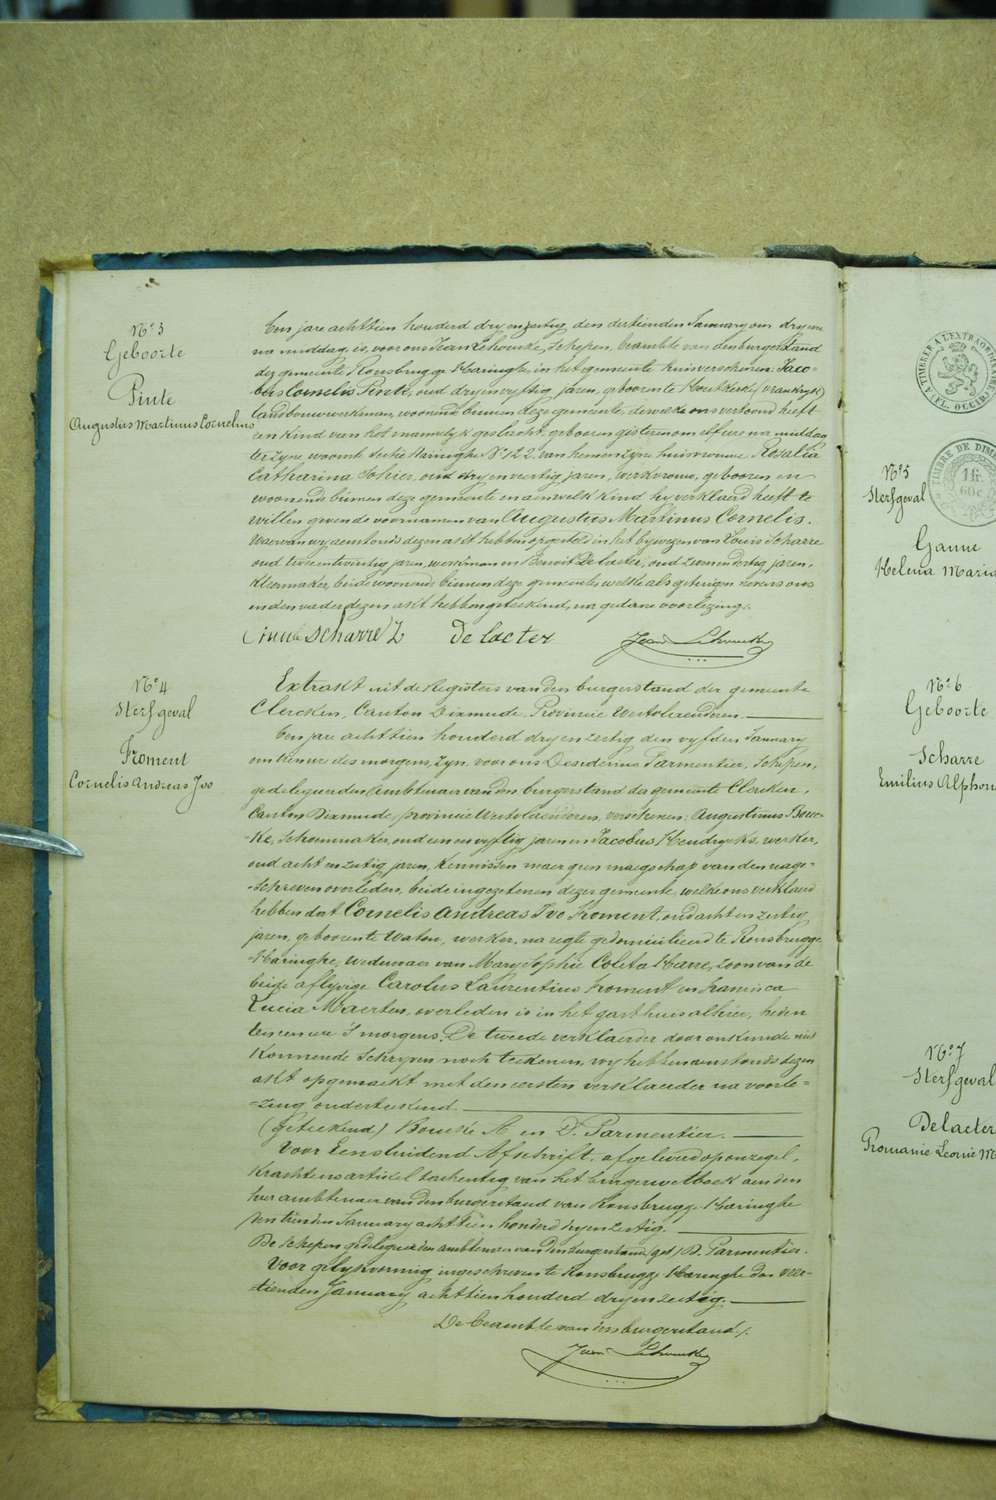 N° 3
Geboorte
Pinte
Augustus Martinus Cornelius
Een jare achttien honderd dry en zestig, den dertienden January om dry ure
na middag, is, voor ons Jean Lehoucke, Schepen, beambte van den burgerstand
der gemeente Rousbrugge Haringhe, in het gemeente huis verschenen: Jaco-
bus Cornelis Pinte, oud dry en vyftig jaren, geboren te Houtkerke (Vrankryk)
landbouwwerkman, woonende binnen deze gemeente, dewelke ons vertoond heeft
een kind van het mannelyk geslacht, geboren gisteren om elf ure na middag
ter zyne woonste Sectie Haringhe N° 122, van hem en zyne huisvrouwe Rosalia
Catharina Sohier, oud dry en veertig jaren, werkvrouw, geboren en
woonende binnen deze gemeente en aen welk kind hy verklaerd heeft te
willen geven de voornamen van Augustus Martinus Cornelis.
Waervan wy aenstonds dezen akt hebben opgesteld in het bywezen van Louis Scharre
oud twee en twintig jaren, werkman en Benoit De laeter, oud zeven en dertig jaren,
kleermaker, beide woonende binnen deze gemeente, welke als getuigen nevens ons
en den vader dezen akt hebben geteekend, na gedane voorlezing.
Scharre L De laeter Jean Lehoucke
N° 4
Sterfgeval
Froment
Cornelis Andreas Ivo
Extrakt uit de Registers van den burgerstand der gemeente
Clercken, Canton Dixmude, Provincie Westvlaenderen.
Een jare achttien honderd dry en zestig den vyfden January
om tien ure des morgens, zyn voor ons Desiderius Parmentier, Schepen,
gedelegueerden ambtenaer van den burgerstand der gemeente Clercken,
Canton Dixmude, provincie Westvlaenderen, verschenen: Augustinus Bouc-
ke, Schoenmaker, oud een en vyftig jaren en Jacobus Hendryckx, werker,
oud acht en zestig jaren, kennissen maer geen maegschap van den nage-
schreven overleden, beide ingezetenen dezer gemeente, welke ons verklaerd
hebben dat Cornelis Andreas Ivo Froment, oud acht en zestig
jaren, geboren te Watou, werker, na regte gedomicilieerd te Rousbrugge
Haringhe, weduwaer van Mary Sophie Coleta Harre, zoon van de
beide aflyvige Carolus Laurentius Froment en Francisca
Lucia Maerten, overleden is in het gasthuis alhier, heden
ten een ure 's morgens. De tweede verklaerder door onkunde niet
konnende schryven noch teekenen, wy hebben aenstonds dezen
akt opgemaekt met den eersten verklaerder na voorle-
zing onderteekend.
(geteekend) Boucke A. en D. Parmentier.
Voor Eensluidend Afschrift, afgeleverd op onzegel,
krachtens artikel tachentig van het burgerwetboek aen den
heer ambtenaer van den burgerstand van Rousbrugge Haringhe
den tienden January achttien honderd dry en zestig.
De Schepen gedelegueerden ambtenaer van den burgerstand (get.) D. Parmentier.
Voor gelykvormig ingeschreven te Rousbrugge Haringhe den veer-
tienden January achttien honderd dry en zestig.
De Beambte van den burgerstand,
Jean Lehoucke
TIMBRE DE DIM
1 fr.
60c
N° 5
Sterfgeval
Ganne
Helena Maria
N° 6
Geboorte
Scharre
Emilius Alphon
N° 7
Sterfgeval
Delaeter
Romanie Leonie M